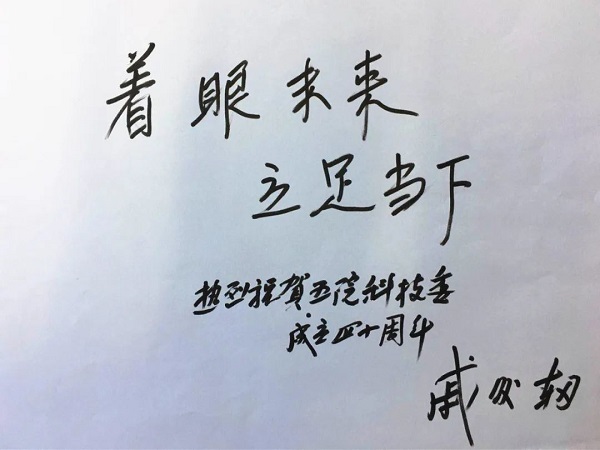 着眼未来
立足当下
热烈祝贺五院科技委
成立四十周年
戚发轫